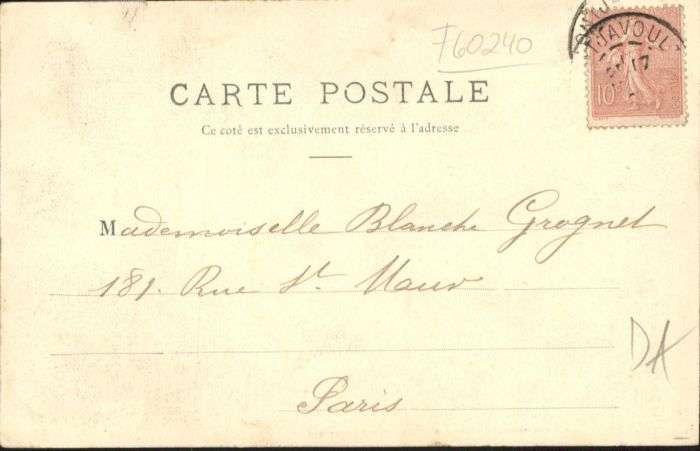 F60240
CARTE POSTALE
Ce coté est exclusivement réservé à l'adresse
Mademoiselle Blanche Grognet
181. Rue St. Maur
Paris
DA
JAVOUL
17
10